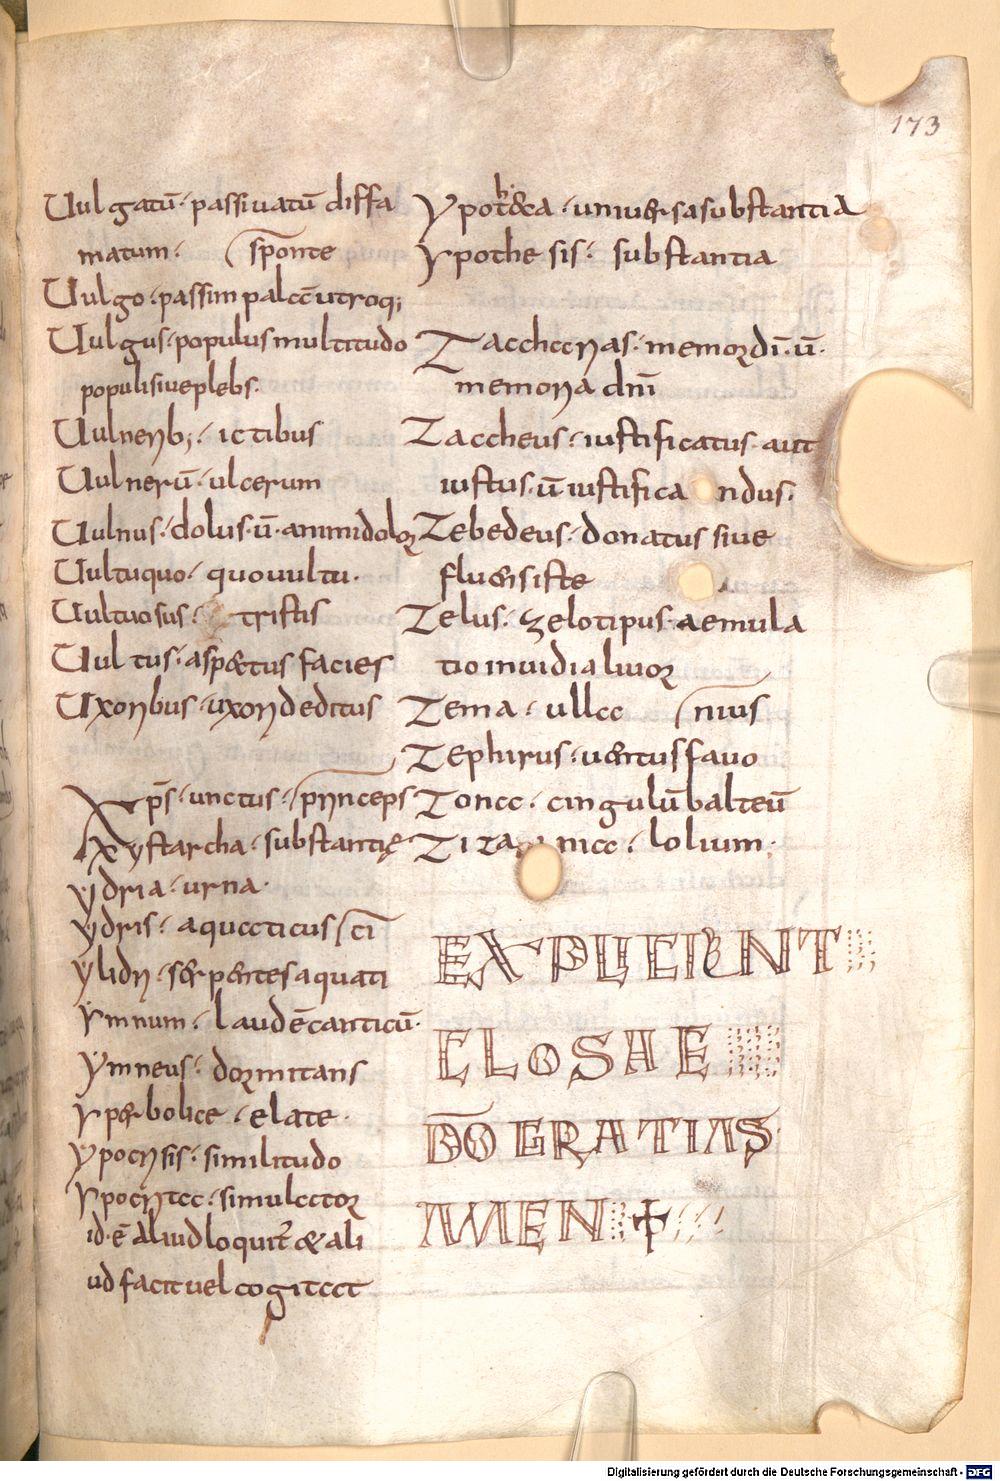 173
Uulgatū · passiuatū diffa
matum · sponte
Uulgo · passim palā utroq;
Uulgus · populus multitudo
populi siue plebs ·
Uulnerib; · ictibus
Uulnerū · ulcerum
Uulnus · dolus · ū · animi dolor
Uultuquo · quo uultu ·
Uultuosus · tristis
Uultus · aspectus facies
Uxoribus · uxori deditus
Xp̄s · unctus · princeps
Xystarcha · substantię
ydria · urna ·
ydris · aquaticus
ylidri · serpentes aquati ci
Ymnum · laudē canticū ·
Ymneus · dormitans
Yperbolice · elate ·
Ypocrisis · similitudo
Ypocrita · simulator
id · ē aliud loquit̄ & ali
ud facit uel cogitat
Ypoth&ca · uniuersa substantia
Ypothesis · substantia
Zaccharias · memor dī · ū ·
memoria dnī
Zaccheus · iustificatus aut
iustus · ū iustificandus ·
Zebedeus · donatus siue
fluens iste
Zelus · zelotipus aemula
tio inuidia liuor
Zema · ulla
Zephirus · uentus fauo nius
Zona · cingulū balteū
Zizania · lolium ·
EXPLICIUNT
GLOSAE
DŌ GRATIAS
AMEN +
Digitalisierung gefördert durch die Deutsche Forschungsgemeinschaft - DFG